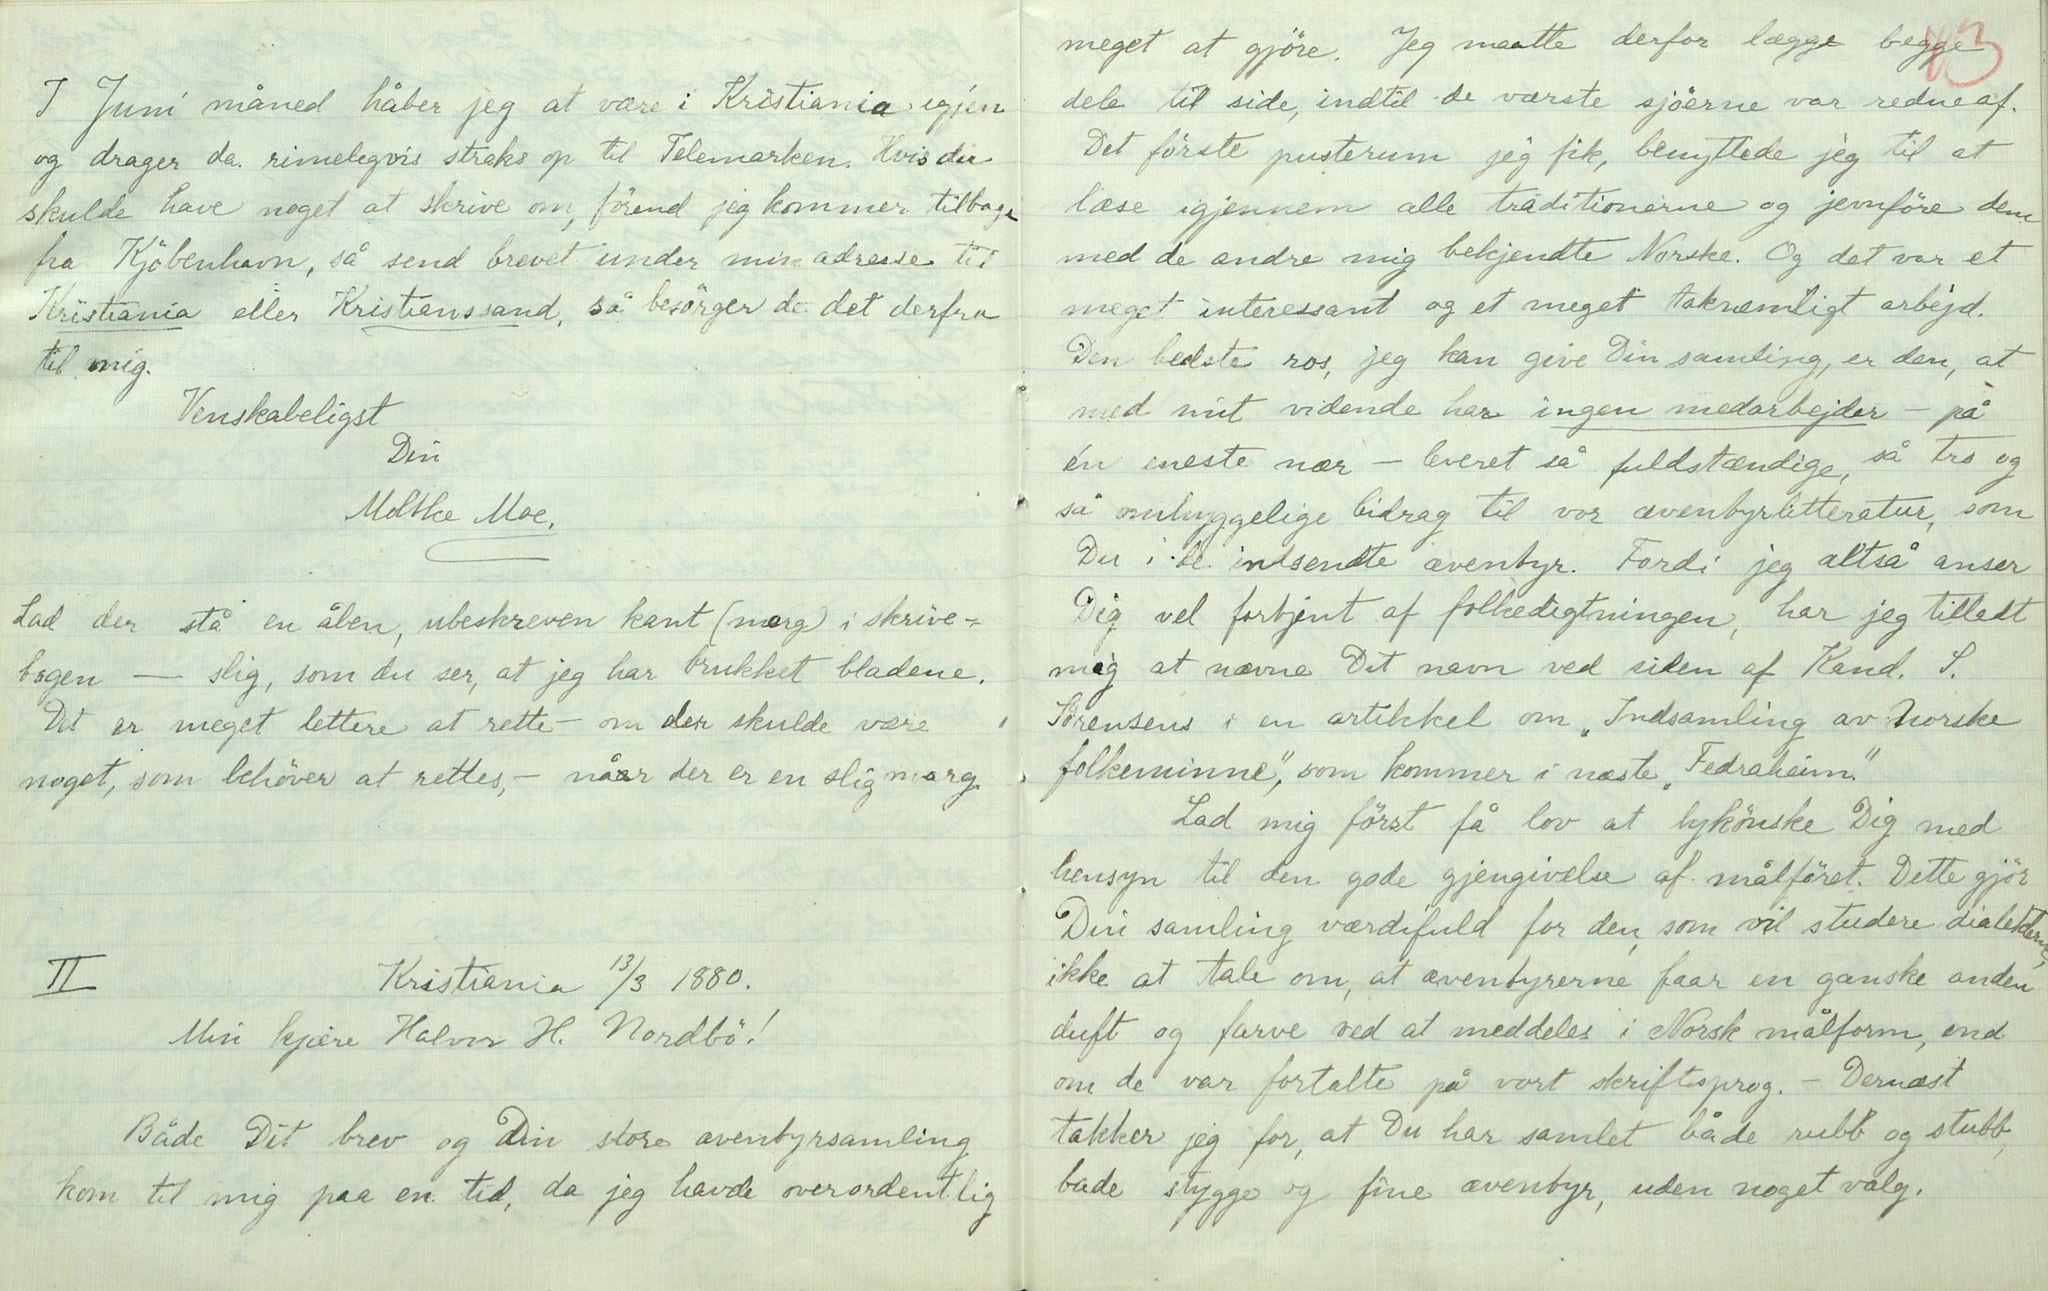 I Juni måned håber jeg at være i Kristiania igjen
og drager da rimeligvis straks op til Telemarken. Hvis du
skulde have noget at skrive om, förend jeg kommer tilbage
fra Kjöbenhavn, så send brevet under min adresse til
Kristiania eller Kristianssand, så besörger de det derfra
til mig.
Venskabeligst
Din
Moltke Moe.
Lad der stå en åben, ubeskreven kant (marg) i skrive=
bogen — slig, som du ser, at jeg har brukket bladene.
Det er meget lettere at rette – om der skulde være
noget, som behöver at rettes, – når der er en slig marg.
II Kristiania 13/3 1880.
Min kjære Halvor H. Nordbö!
Både Dit brev og Din store æventyrsamling
kom til mig paa en tid, da jeg havde overordentlig
83
meget at gjöre. Jeg maatte derfor lægge begge
dele til side, indtil de værste sjöerne var redne af.
Det förste pusterum jeg fik, benyttede jeg til at
læse igjennem alle traditionerne og jevnföre dem
med de andre mig bekjendte Norske. Og det var et
meget interessant og et meget taknemligt arbejd.
Den bedste ros, jeg kan give Din samling, er den, at
med mit vidende har ingen medarbejder – på
én eneste nær – leveret så fuldstændige, så tro og
så omhyggelige bidrag til vor æventyrlitteratur, som
Du i de indsendte æventyr. Fordi jeg altså anser
Dig vel fortjent af folkedigtningen, har jeg tilladt
mig at nævne Dit navn ved siden af Kand. S.
Sörensens i en artikkel om „Indsamling av norske
folkeminne", som kommer i næste „Fedraheim."
Lad mig först få lov at lykönske Dig med
hensyn til den gode gjengivelse af målföret. Dette gjör
Din samling værdifuld for den, som vil studere dialekterne,
ikke at tale om, at æventyrerne faar en ganske anden
duft og farve ved at meddeles i Norsk målform, end
om de var fortalte på vort skriftsprog. – Dernæst
takker jeg for, at Du har samlet både rubb og stubb,
bade stygge og fine æventyr, uden noget valg.